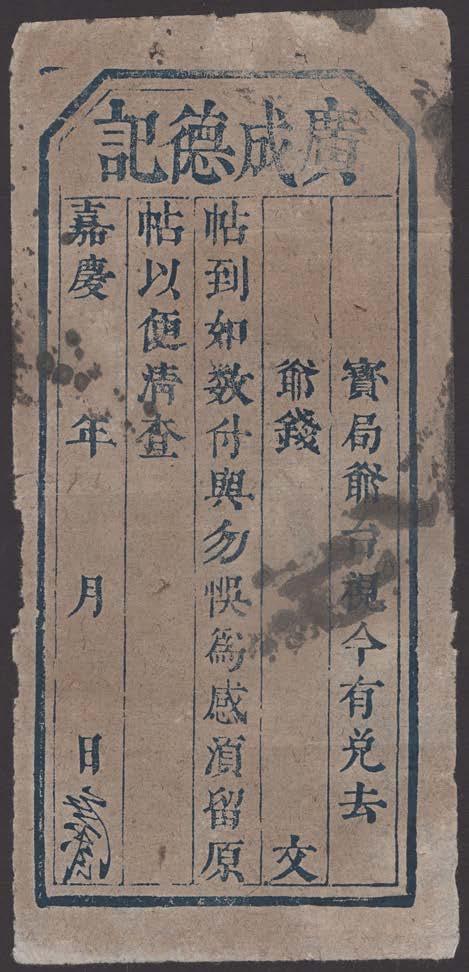 廣成德記
寳局爺台視今有兑去
爺錢 交
帖到如数付與勿悮爲感湏留原
帖以便清查
嘉慶 年 月 日